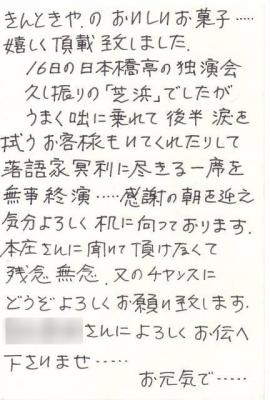 きんときや.の おいしいお菓子.....
嬉しく頂載致しました.
16日の日本橋亭の独演会
久し振りの「芝浜」でしたが
うまく咄に乗れて 後半 涙を
拭う お客様もいてくれたりして
落語家冥利に尽きる一席を
無事終演.....感謝の朝を迎え
気分よろしく 机に向っております.
本庄さんに聞いて頂けなくて
残念無念. 又のチャンスに
どうぞよろしくお願い致します.
さんに よろしく お伝へ
下さいませ.....
お元気で.....